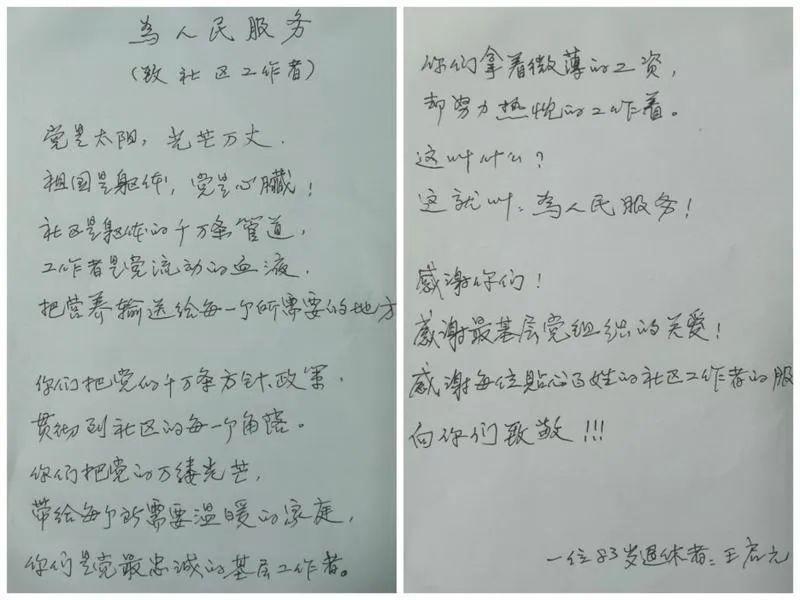 為人民服务
（致社区工作者）
党是太阳，光芒万丈．
祖国是躯体，党是心臓！
社区是躯体的千万条管道，
工作者是党流动的血液．
把营养输送给每一个所需要的地方
你们把党的千万条方针、政策．
贯彻到社区的每一个角落。
你们把党的万缕光芒，
带给每个所需要温暖的家庭，
你们是党最忠诚的基层工作者。
你们拿着微薄的工资，
却努力热忱的工作着。
这叫什么？
这就叫：為人民服务！
感谢你们！
感谢最基层党组织的关爱！
感谢每位贴心百姓的社区工作者的服
向你们致敬！！！
一位83岁退休者：王启元